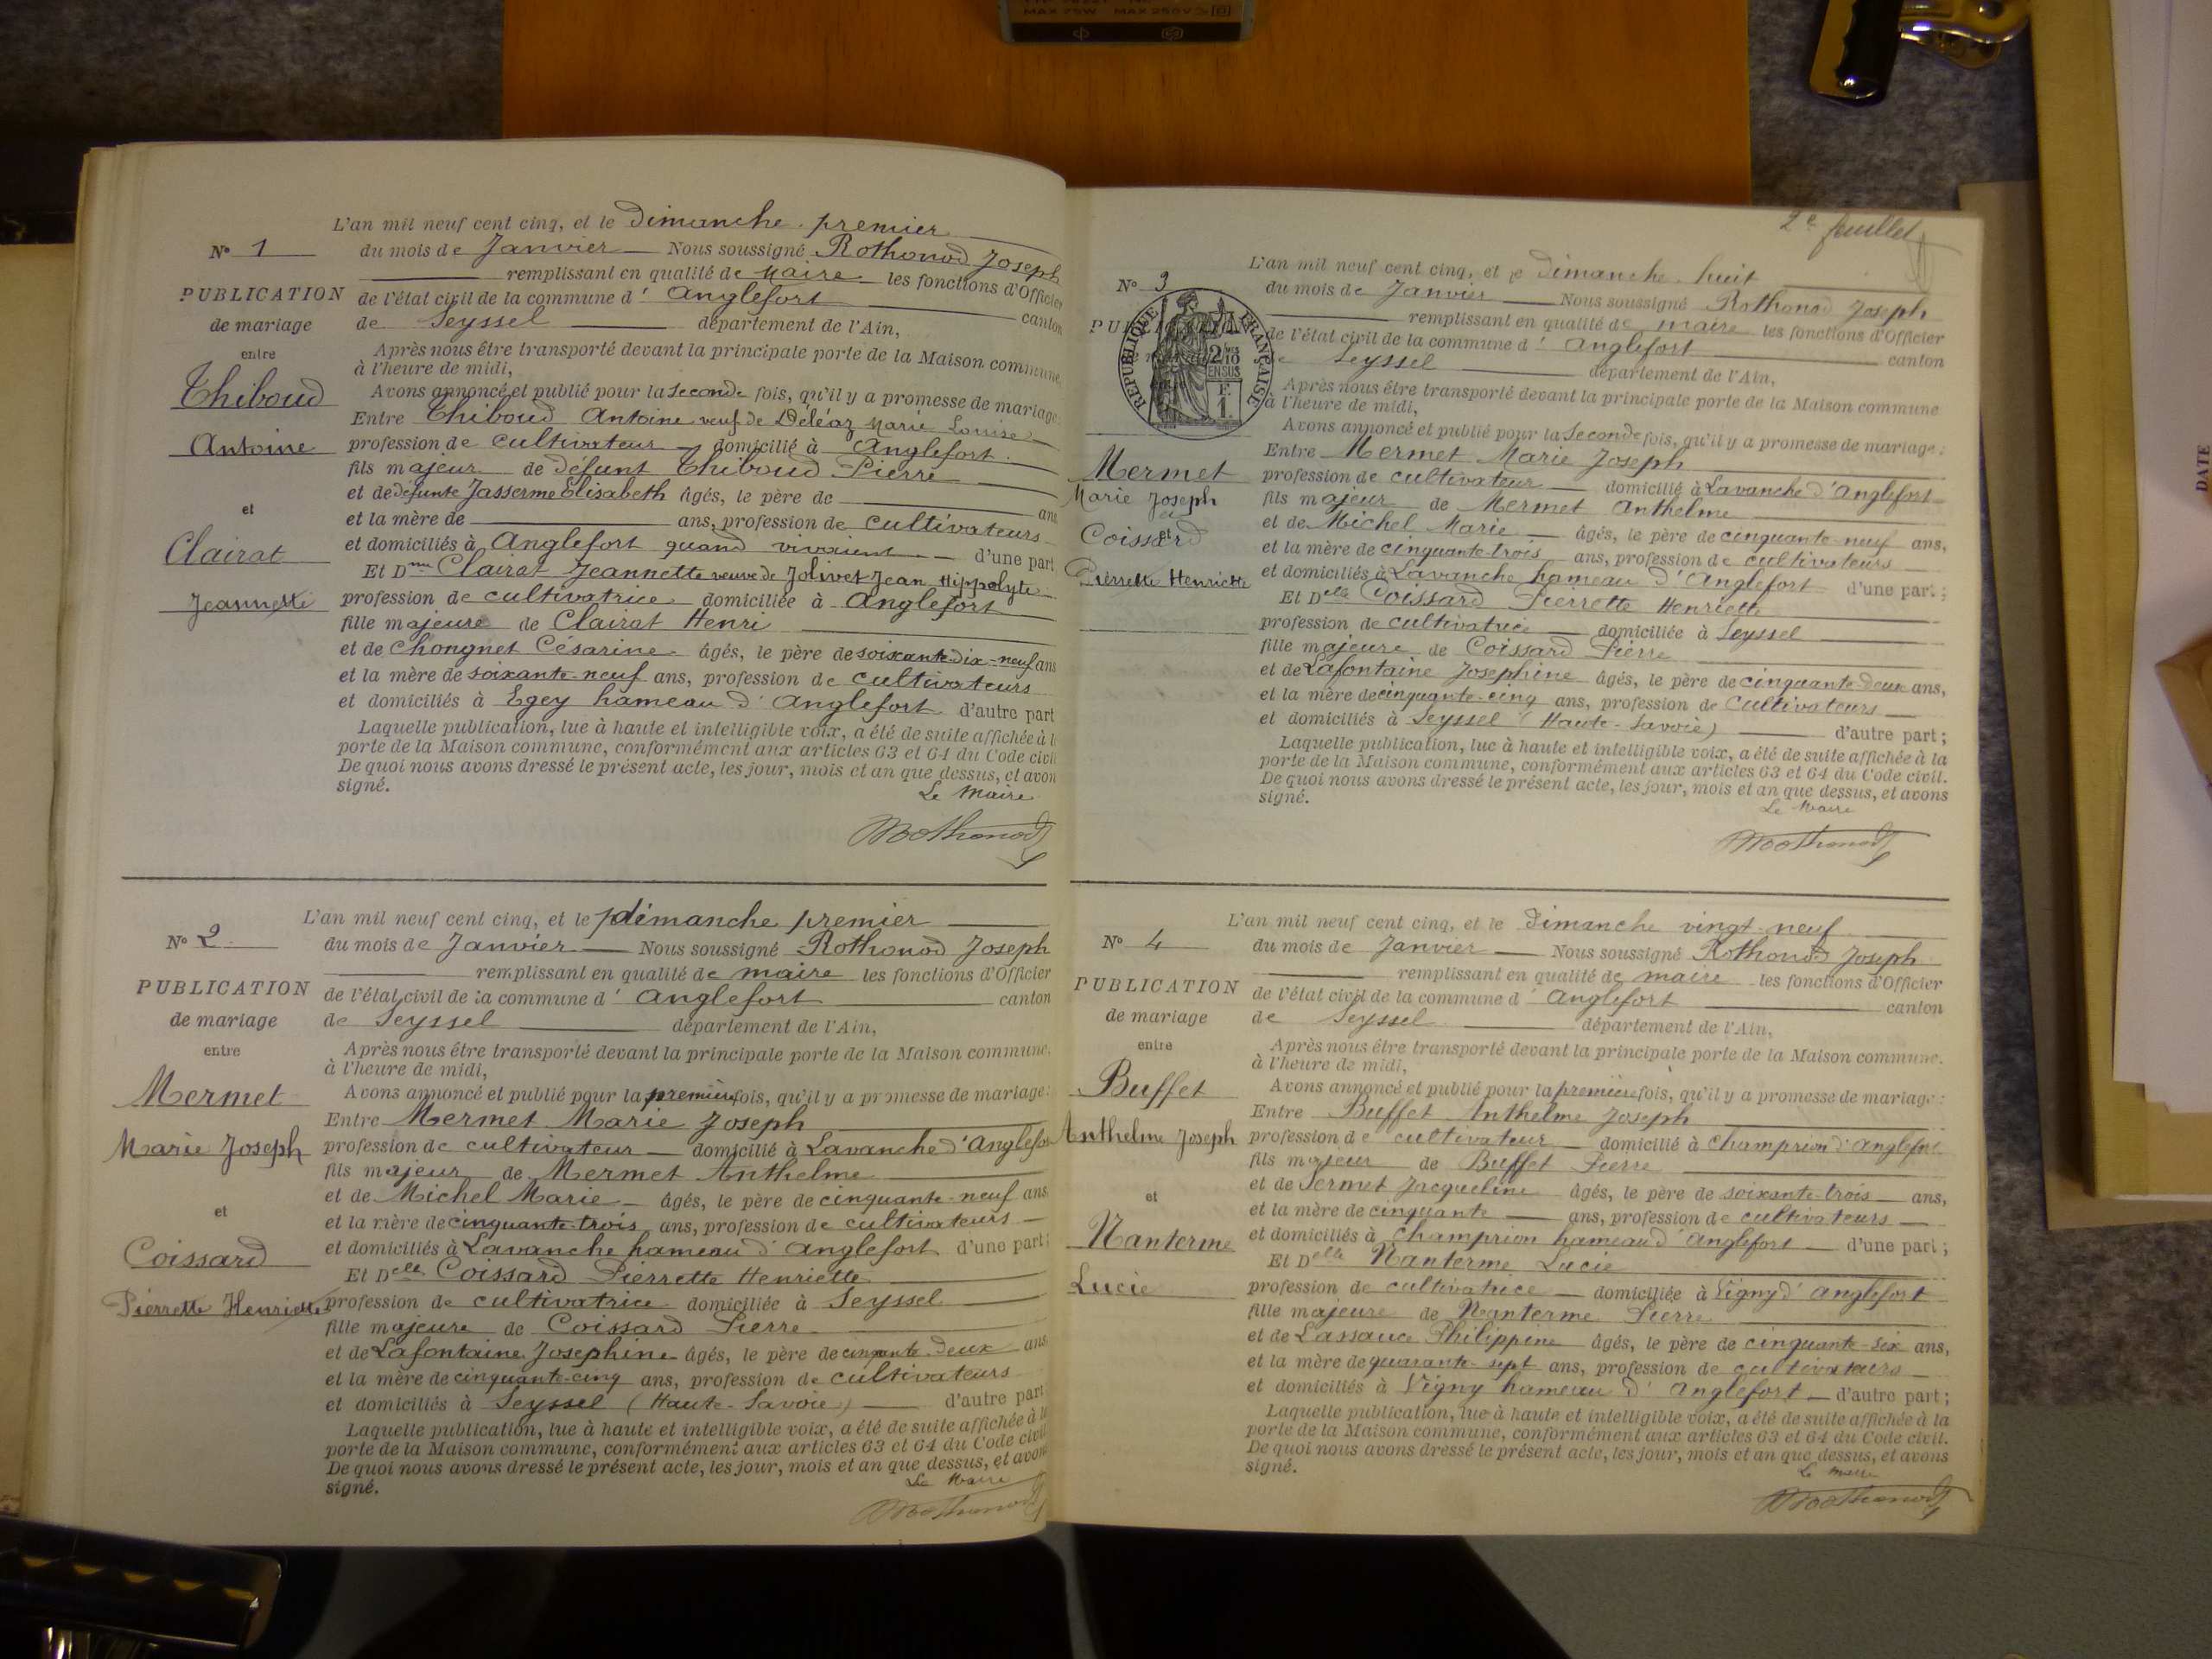 MAX 75W MAX 250V
L'an mil neuf cent cinq, et le Dimanche premier
N° 1
du mois de Janvier Nous soussigné Rothonod Joseph
remplissant en qualité de Maire les fonctions d'Officier
PUBLICATION
de l'état civil de la commune d' Anglefort canton
de mariage
de Seyssel département de l'Ain,
entre
Après nous être transporté devant la principale porte de la Maison commune,
à l'heure de midi,
Thiboud
Avons annoncé et publié pour la Seconde fois, qu'il y a promesse de mariage:
Entre Thiboud Antoine veuf de Déléaz Marie Louise
Antoine
profession de cultivateur domicilié à Anglefort
fils majeur de défunt Thiboud Pierre
et de défunte Jasserme Elisabeth âgés, le père de ans
et
et la mère de ans, profession de cultivateurs
Clairat
et domiciliés à Anglefort quand vivaient d'une part
Et Dme Clairat Jeannette veuve de Jolivet Jean Hippolyte
Jeannette
profession de cultivatrice domiciliée à Anglefort
fille majeure de Clairat Henri
et de Chongnet Césarine âgés, le père de soixante-dix-neuf ans
et la mère de soixante-neuf ans, profession de cultivateurs
et domiciliés à Egey hameau d' Anglefort d'autre part
Laquelle publication, lue à haute et intelligible voix, a été de suite affichée à l
porte de la Maison commune, conformément aux articles 63 et 64 du Code civil
De quoi nous avons dressé le présent acte, les jour, mois et an que dessus, et avon
signé.
Le Maire
Rothonod
L'an mil neuf cent cinq, et le dimanche premier
N° 2
du mois de Janvier Nous soussigné Rothonod Joseph
remplissant en qualité de maire les fonctions d'Officier
PUBLICATION
de l'état civil de la commune d' Anglefort canton
de mariage
de Seyssel département de l'Ain,
entre
Après nous être transporté devant la principale porte de la Maison commune,
à l'heure de midi,
Mermet
Avons annoncé et publié pour la première fois, qu'il y a promesse de mariage:
Entre Mermet Marie Joseph
Marie Joseph
profession de cultivateur domicilié à Lavanche d'Anglefort
fils majeur de Mermet Anthelme
et de Michel Marie âgés, le père de cinquante-neuf ans
et
et la mère de cinquante-trois ans, profession de cultivateurs
Coissard
et domiciliés à Lavanche hameau d' Anglefort d'une part;
Et Delle Coissard Pierrette Henriette
Pierrette Henriette
profession de cultivatrice domiciliée à Seyssel
fille majeure de Coissard Pierre
et de Lafontaine Josephine âgés, le père de cinquante-deux ans
et la mère de cinquante-cinq ans, profession de cultivateurs
et domiciliés à Seyssel (Haute-Savoie) d'autre part
Laquelle publication, lue à haute et intelligible voix, a été de suite affichée à la
porte de la Maison commune, conformément aux articles 63 et 64 du Code civil
De quoi nous avons dressé le présent acte, les jour, mois et an que dessus, et avons
signé.
Le Maire
Rothonod
2e feuillet
L'an mil neuf cent cinq, et le Dimanche huit
N° 3
du mois de Janvier Nous soussigné Rothonod Joseph
remplissant en qualité de maire les fonctions d'Officier
PUBLICATION
de l'état civil de la commune d' Anglefort canton
de Seyssel département de l'Ain,
RÉPUBLIQUE FRANÇAISE
2/10 EN SUS
F. 1.
Après nous être transporté devant la principale porte de la Maison commune
à l'heure de midi,
Avons annoncé et publié pour la Seconde fois, qu'il y a promesse de mariage:
Entre Mermet Marie Joseph
Mermet
profession de cultivateur domicilié à Lavanche d'Anglefort
Marie Joseph
fils majeur de Mermet Anthelme
et
et de Michel Marie âgés, le père de cinquante-neuf ans,
Coissard
et la mère de cinquante-trois ans, profession de cultivateurs
Pierrette Henriette
et domiciliés à Lavanche hameau d' Anglefort d'une part;
Et Delle Coissard Pierrette Henriette
profession de cultivatrice domiciliée à Seyssel
fille majeure de Coissard Pierre
et de Lafontaine Josephine âgés, le père de cinquante-deux ans,
et la mère de cinquante-cinq ans, profession de cultivateurs
et domiciliés à Seyssel (Haute-Savoie) d'autre part;
Laquelle publication, lue à haute et intelligible voix, a été de suite affichée à la
porte de la Maison commune, conformément aux articles 63 et 64 du Code civil.
De quoi nous avons dressé le présent acte, les jour, mois et an que dessus, et avons
signé.
Le Maire
Rothonod
L'an mil neuf cent cinq, et le Dimanche vingt-neuf
N° 4
du mois de Janvier Nous soussigné Rothonod Joseph
remplissant en qualité de maire les fonctions d'Officier
PUBLICATION
de l'état civil de la commune d' Anglefort canton
de mariage
de Seyssel département de l'Ain,
entre
Après nous être transporté devant la principale porte de la Maison commune.
à l'heure de midi,
Buffet
Avons annoncé et publié pour la première fois, qu'il y a promesse de mariage:
Entre Buffet Anthelme Joseph
Anthelme Joseph
profession de cultivateur domicilié à Champrion d'Anglefort
fils majeur de Buffet Pierre
et de Sermet Jacqueline âgés, le père de soixante-trois ans,
et
et la mère de cinquante ans, profession de cultivateurs
Nanterme
et domiciliés à Champrion hameau d' Anglefort d'une part;
Et Delle Nanterme Lucie
Lucie
profession de cultivatrice domiciliée à Vigny d' Anglefort
fille majeure de Nanterme Pierre
et de Lassauce Philippine âgés, le père de cinquante-six ans,
et la mère de quarante-sept ans, profession de cultivateurs
et domiciliés à Vigny hameau d' Anglefort d'autre part;
Laquelle publication, lue à haute et intelligible voix, a été de suite affichée à la
porte de la Maison commune, conformément aux articles 63 et 64 du Code civil.
De quoi nous avons dressé le présent acte, les jour, mois et an que dessus, et avons
signé.
Le Maire
Rothonod
DATE